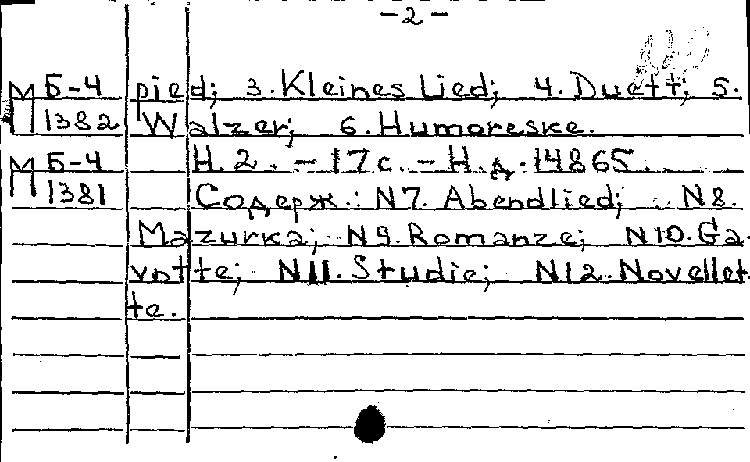 -2-
М Б-4 pied; 3. Kleines Lied; 4. Duett; 5.
1382 Walzer; 6. Humoreske.
М Б-4 Н. 2. - 17 с. - Н.д. 14865.
1381 Содерж.: N7. Abendlied; N8.
Mazurka; N9. Romanze; N10. Ga-
votte; N11. Studie; N12. Novellet-
te.